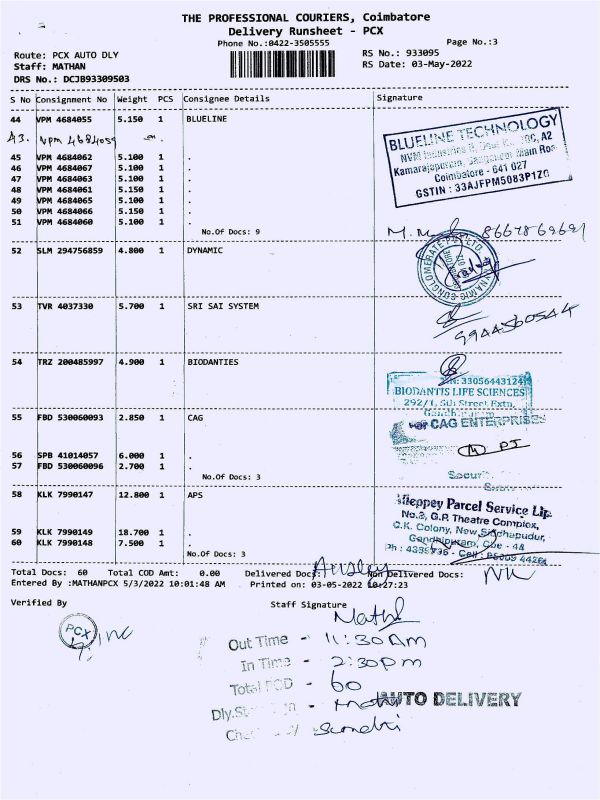 THE PROFESSIONAL COURIERS, Coimbatore
Delivery Runsheet - PCX
Phone No.:0422-3505555
Page No.:3
Route: PCX AUTO DLY
RS No.: 933095
Staff: MATHAN
RS Date: 03-May-2022
DRS No.: DCJB93309503
S No Consignment No Weight PCS Consignee Details Signature
44 VPM 4684055 5.150 1 BLUELINE
A3. Vpm 4684059
45 VPM 4684062 5.100 1 .
46 VPM 4684067 5.100 1 .
47 VPM 4684063 5.100 1 .
48 VPM 4684061 5.150 1 .
49 VPM 4684065 5.100 1 .
50 VPM 4684066 5.150 1 .
51 VPM 4684060 5.100 1 .
No.Of Docs: 9
BLUELINE TECHNOLOGY
A2
Kamarajapuram, Main Roa
Coimbatore - 641 027
GSTIN : 33AJFPM5083P1ZG
52 SLM 294756859 4.800 1 DYNAMIC
53 TVR 4037330 5.700 1 SRI SAI SYSTEM
9944560544
54 TRZ 200485997 4.900 1 BIODANTIES
33056443124
BIODANTIS LIFE SCIENCES
292/1, 5th Street Extn,
55 FBD 530060093 2.850 1 CAG
For CAG ENTERPRISES
56 SPB 41014057 6.000 1 .
57 FBD 530060096 2.700 1 .
No.Of Docs: 3
58 KLK 7990147 12.800 1 APS
59 KLK 7990149 18.700 1 .
60 KLK 7990148 7.500 1 .
No.Of Docs: 3
Parcel Service
No.3, G.P. Theatre Complex,
C.K. Colony, New Siddhapudur,
Gandhipuram, Cbe - 44
Total Docs: 60 Total COD Amt: 0.00 Delivered Docs: Non Delivered Docs:
Entered By :MATHANPCX 5/3/2022 10:01:48 AM Printed on: 03-05-2022 10:27:23
Verified By
Staff Signature
PCX
Out Time - 11:30Am
In Time - 2:30pm
Total POD - 60
AUTO DELIVERY